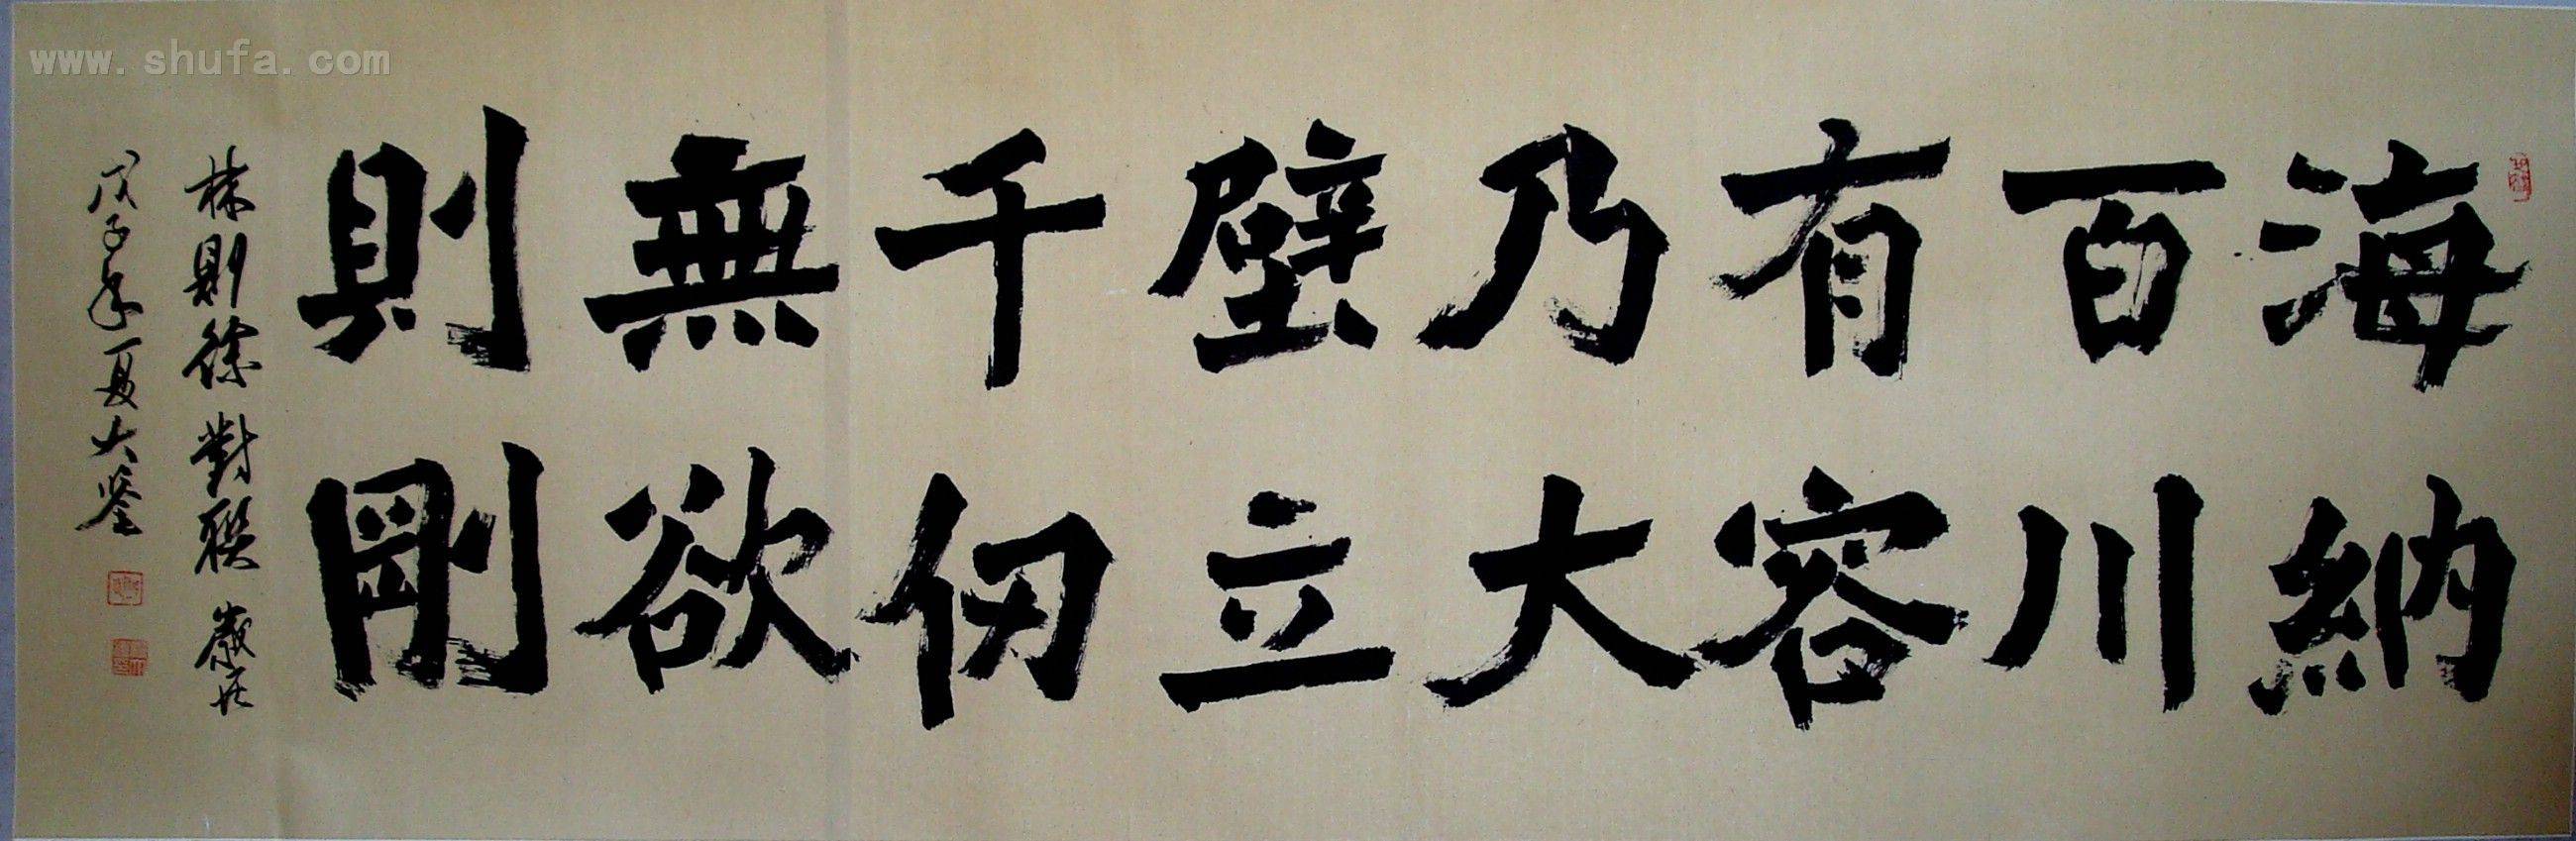 海納
百川
有容
乃大
壁立
千仞
無欲
則剛
林則徐對聯 歲在
戊子年夏大鉴
www.shufa.com